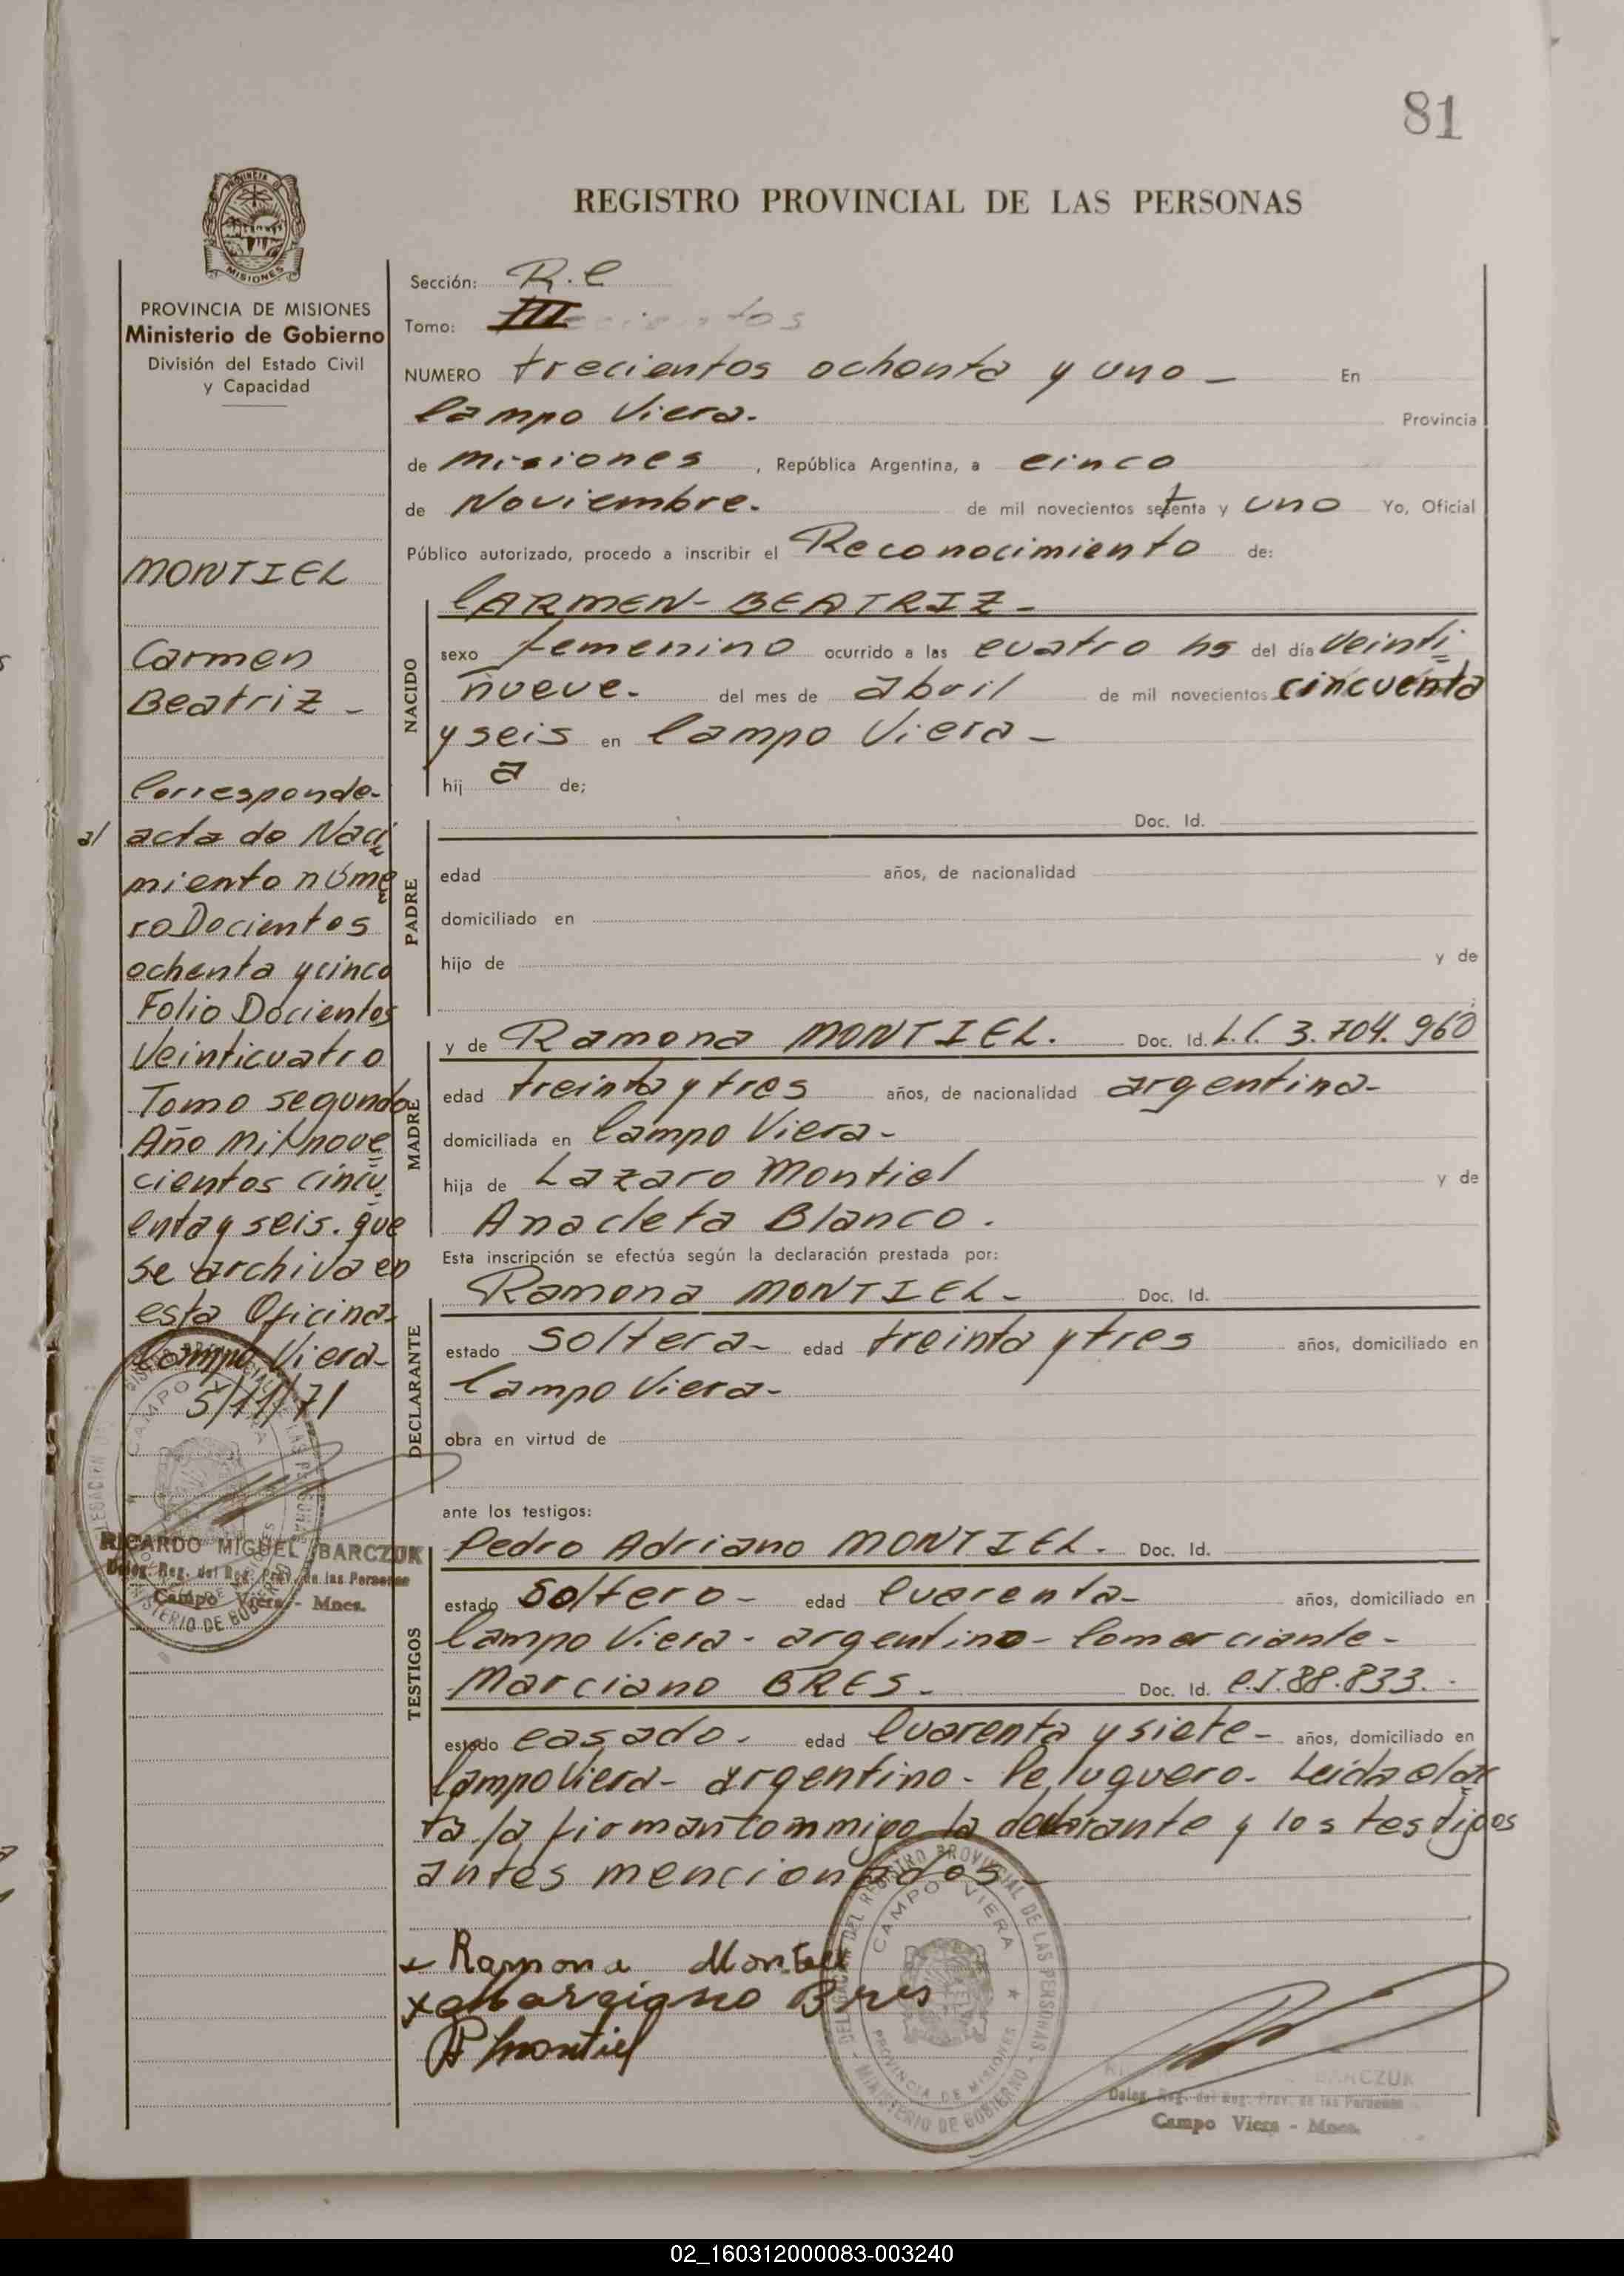 81
REGISTRO PROVINCIAL DE LAS PERSONAS
PROVINCIA DE MISIONES
Ministerio de Gobierno
División del Estado Civil
y Capacidad
MONTIEL
Carmen
Beatriz -
Corresponde-
al acta de Naci
miento núme
ro Docientos
ochenta y cinco
Folio Docientos
Veinticuatro
Tomo segundo
Año Mil nove
cientos cincu
enta y seis. que
se archiva en
esta Oficina.
Campo Viera-
5/11/71
RICARDO MIGUEL BARCZUK
Deleg. Reg. del Reg. Prov. de las Personas
Campo Viera - Mnes.
Sección: R.C
Tomo: III
NUMERO trecientos ochenta y uno - En
Campo Viera. Provincia
de Misiones , República Argentina, a cinco
de Noviembre. de mil novecientos setenta y uno Yo, Oficial
Público autorizado, procedo a inscribir el Reconocimiento de:
CARMEN- BEATRIZ-
NACIDO
sexo femenino ocurrido a las cuatro hs del día Veinti
nueve. del mes de abril de mil novecientos cincuenta
y seis en Campo Viera -
hij a de;
PADRE
Doc. Id.
edad años, de nacionalidad
domiciliado en
hijo de y de
MADRE
y de Ramona MONTIEL. Doc. Id. L.C. 3.704.960
edad treinta y tres años, de nacionalidad argentina-
domiciliada en Campo Viera-
hija de Lazaro Montiel y de
Anacleta Blanco.
Esta inscripción se efectúa según la declaración prestada por:
DECLARANTE
Ramona MONTIEL- Doc. Id.
estado Soltera- edad treinta y tres años, domiciliado en
Campo Viera-
obra en virtud de
ante los testigos:
TESTIGOS
Pedro Adriano MONTIEL. Doc. Id.
estado Soltero- edad Cuarenta- años, domiciliado en
Campo Viera- argentino- Comerciante-
Marciano BRES. Doc. Id. C.I.88.833.-
estado casado. edad Cuarenta y siete- años, domiciliado en
Campo Viera- argentino- Peluquero- Leida el ac
ta la firman commigo la declarante y los testigos
antes mencionados-
x Ramona Montiel
x Marciano Bres
P Montiel
DELEGACION DEL REGISTRO PROVINCIAL DE LAS PERSONAS
CAMPO VIERA
PROVINCIA DE MISIONES
MINISTERIO DE GOBIERNO
BARCZUK
Deleg. Reg. del Reg. Prov. de las Personas
Campo Viera - Mnes.
02_160312000083-003240